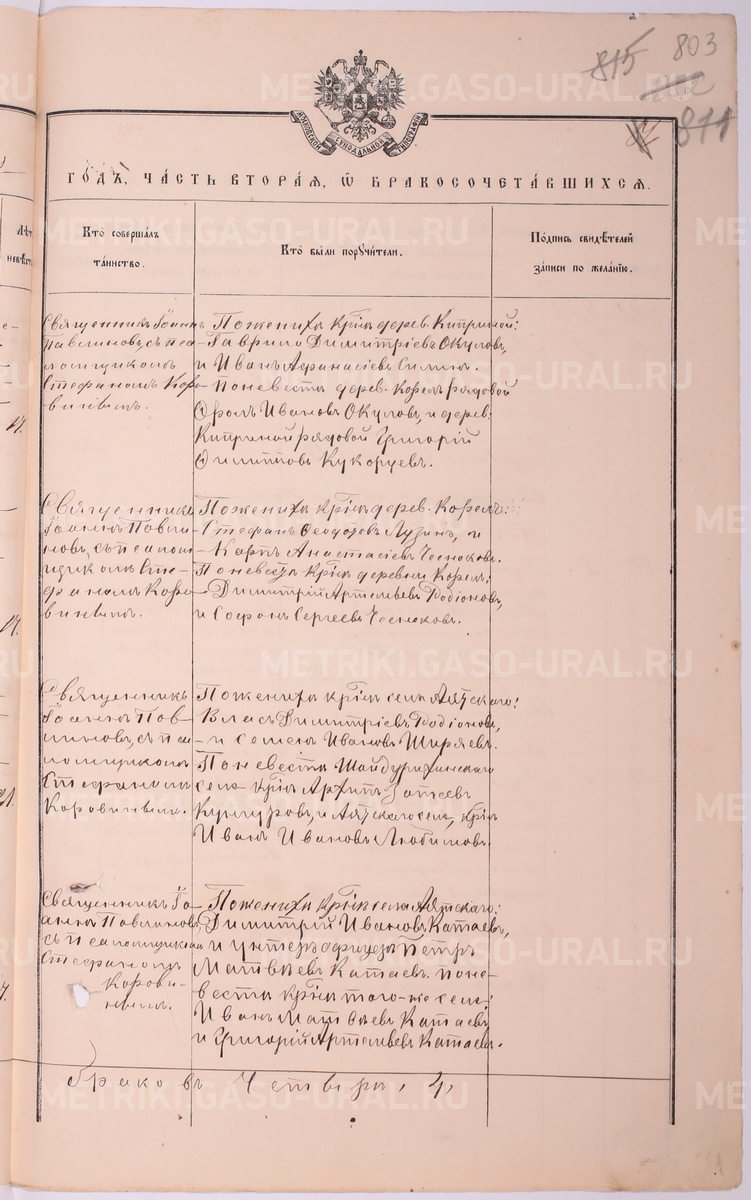 815
803
811
МОСКОВСКОЙ СУНОДАЛЬНОЙ ТИПОГРАФІИ
ГОДЪ, ЧАСТЬ ВТОРАЯ, Ѡ БРАКОСОЧЕТАВШИХСЯ.
Кто совершалъ
таинство.
Кто были поручители.
Подпись свидѣтелей
записи по желанію.
Священникъ Іоаннъ
Павлиновъ, съ пса
ломщикомъ
Стефаномъ Коро
винымъ.
По женихѣ крⷭ҇тⸯ дерев. Киприной:
Гаврило Димитріевъ Окуловъ,
и Иванъ Афанасіевъ Силинъ.
По невѣстѣ дерев. Корелъ рядовой
Фролъ Ивановъ Окуловъ, и дерев.
Киприной рядовой Григорій
Филипповъ Кукарцевъ.
Священникъ
Іоаннъ Павли
новъ, съ псалом
щикомъ Сте
фаномъ Коро
винымъ.
По женихѣ крⷭ҇тⸯ дерев. Корелъ:
Стефанъ Ѳеодоровъ Лузинъ, и
Карпъ Анастасіевъ Чесноковъ.
По невѣстѣ крⷭ҇тⸯ деревни Корелъ:
Димитрій Артемьевъ Родіоновъ,
и Софонъ Сергеевъ Чесноковъ.
Священникъ
Іоаннъ Пав
линовъ, съ пса
ломщикомъ
Стефаномъ
Коровинымъ.
По женихѣ крⷭ҇тⸯ села Аятскаго:
Власъ Димитріевъ Родіоновъ,
и Семенъ Ивановъ Ширяевъ.
По невѣстѣ Шайдурихинскаго
села крⷭ҇тⸯ Архипъ Зотеевъ
Кунгуровъ, и Аятскаго села, крⷭ҇тⸯ
Иванъ Ивановъ Любимовъ.
Священникъ Іо
аннъ Павлиновъ,
съ псаломщикомъ
Стефаномъ
Корови-
нымъ.
По женихѣ крⷭ҇тⸯ села Аятскаго:
Димитрій Ивановъ Катаевъ,
и унтеръ офицеръ Петръ
Матвѣевъ Катаевъ. По не-
вѣстѣ крⷭ҇тⸯ того-же села:
Иванъ Матвѣевъ Катаевъ
и Григорій Артемьевъ Катаевъ.
Браковъ Четыре, 4,
METRIKI.GASO-URAL.RU